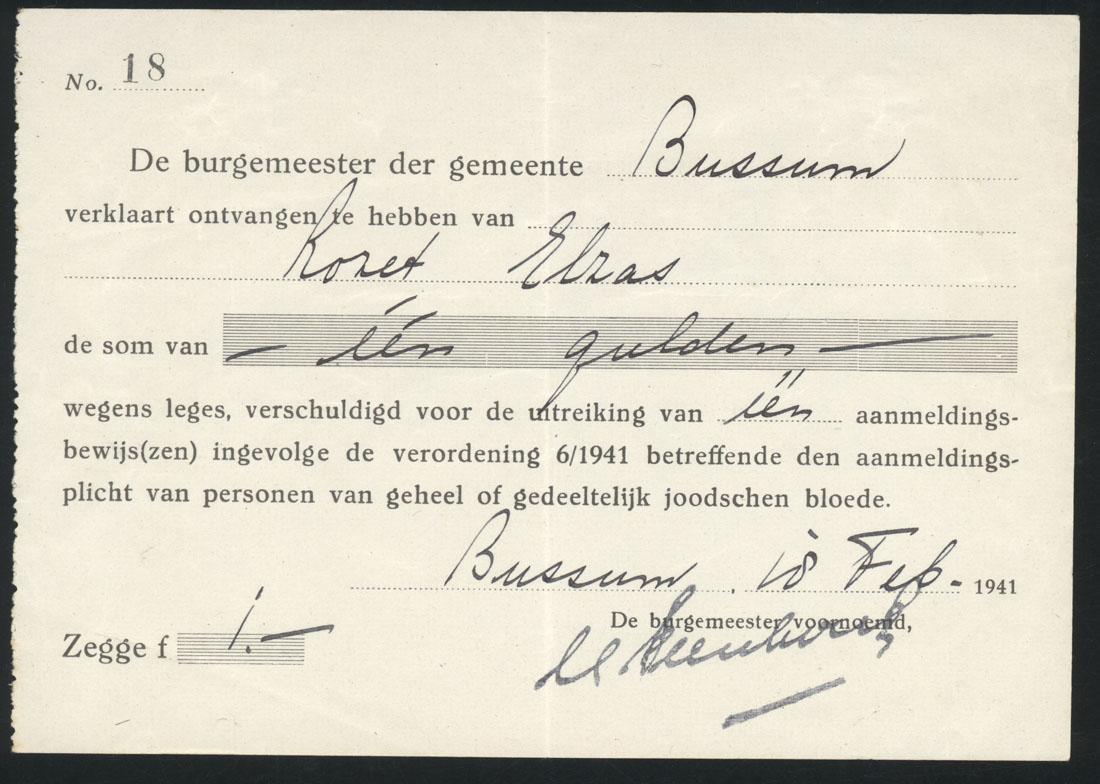 No. 18
De burgemeester der gemeente Bussum
verklaart ontvangen te hebben van
Rozet Elzas
de som van — één gulden —
wegens leges, verschuldigd voor de uitreiking van één aanmeldings-
bewijs(zen) ingevolge de verordening 6/1941 betreffende den aanmeldings-
plicht van personen van geheel of gedeeltelijk joodschen bloede.
Bussum, 18 Feb. 1941
De burgemeester voornoemd,
Zegge f 1.—